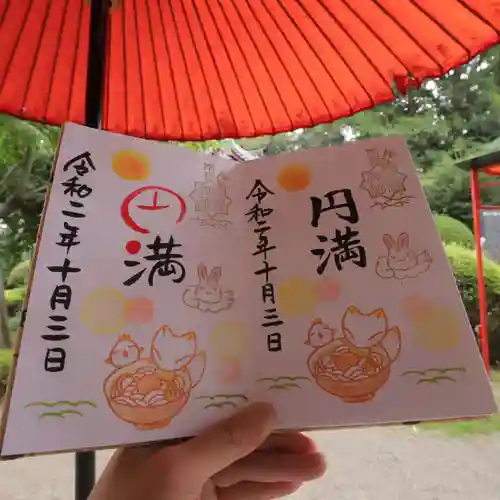 令和二年十月三日
円満
令和二年十月三日
円満